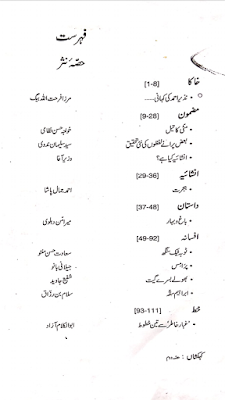 فہرست
حصۂ نثر
خاکا
[1-8]
نذیر احمد کی کہانی..... مرزا فرحت اللہ بیگ
مضمون
[9-28]
مٹی کا تیل خواجہ حسن نظامی
بعض پرانے لفظوں کی نئی تحقیق سید سلیمان ندوی
انشائیہ کیا ہے؟ وزیر آغا
انشائیہ
[29-36]
ہجرت احمد جمال پاشا
داستان
[37-48]
باغ و بہار میر امن دہلوی
افسانہ
[49-92]
ٹوبہ ٹیک سنگھ سعادت حسن منٹو
جیلانی بانو
بھولے بسرے گیت شفیع جاوید
ابراہیم سقہ سلام بن رزاق
خط
[93-111]
'غبار خاطر' سے تین خطوط ابوالکلام آزاد
کہکشاں: حصہ دوم